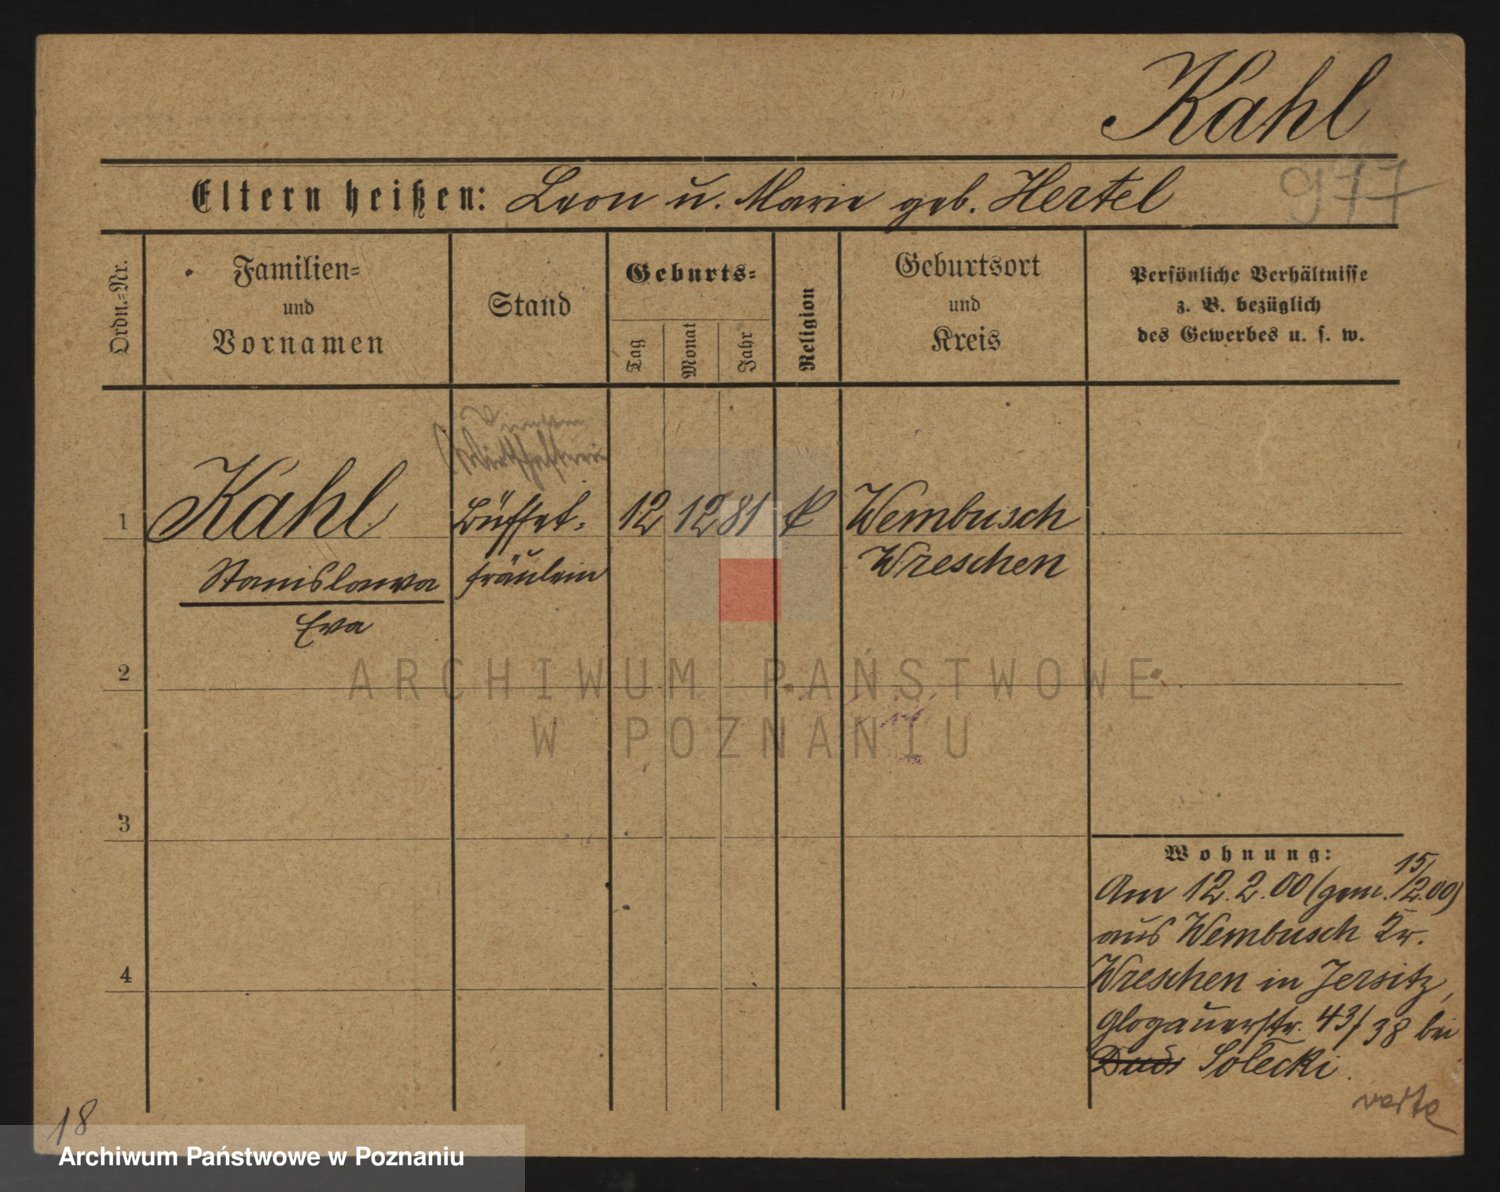 Kahl
Eltern heißen: Leon u. Marie geb. Hertel
977
Ordn.=Nr.
Familien=
und
Vornamen
Stand
Geburts=
Tag
Monat
Jahr
Religion
Geburtsort
und
Kreis
Persönliche Verhältnisse
z. B. bezüglich
des Gewerbes u. s. w.
1
Kahl
Stanislawa
Eva
Büffet=
fräulein
12
12
81
k
Wembusch
Wreschen
2
3
4
Wohnung:
Am 12.2.00 (gem. 15/2.00)
aus Wembusch Kr.
Wreschen in Jersitz,
Glogauerstr. 43/38 bei
Solecki.
verte
18
ARCHIWUM PAŃSTWOWE
W POZNANIU
Archiwum Państwowe w Poznaniu